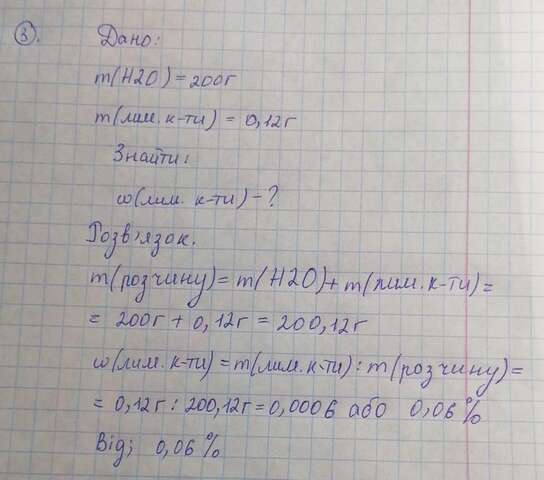 3.
Дано:
m(H2O)=200г
m(лим.к-ти) = 0,12г
Знайти:
ω(лим. к-ти)-?
Розв'язок.
m(розчину)= m(H2O)+ m(лим.к-ти)=
= 200г + 0,12г = 200,12г
ω(лим.к-ти) = m(лим.к-ти) : m(розчину)=
= 0,12г : 200,12г = 0,0006 або 0,06%
Від; 0,06%